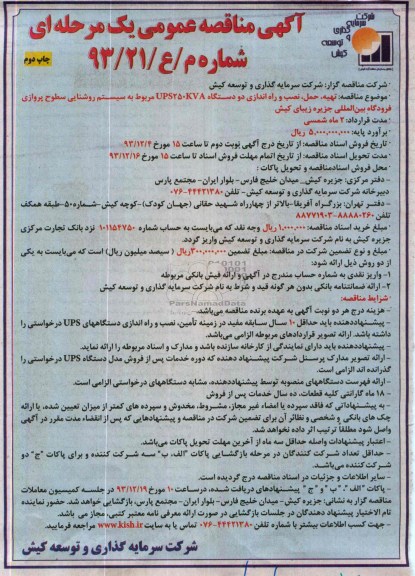 شرکت
سرمایه
گذاری
و
توسعه
کیش
آگهی مناقصه عمومی یک مرحله ای
شماره م/ع/۹۳/۲۱
چاپ دوم
- شرکت مناقصه گزار: شرکت سرمایه گذاری و توسعه کیش
- موضوع مناقصه: تهیه، حمل، نصب و راه اندازی دو دستگاه UPS۲۵۰KVA مربوط به سیستم روشنایی سطوح پروازی
فرودگاه بین‌المللی جزیره زیبای کیش
- مدت قرارداد: ۲ ماه شمسی
- برآورد پایه: ۵,۰۰۰,۰۰۰,۰۰۰ ریال
- تاریخ فروش اسناد مناقصه: از تاریخ درج آگهی نوبت دوم تا ساعت ۱۵ مورخ ۹۳/۱۲/۴
- مدت تحویل اسناد مناقصه: از تاریخ اتمام مهلت فروش اسناد تا ساعت ۱۵ مورخ ۹۳/۱۲/۱۶
- محل فروش اسناد مناقصه و تحویل پاکات :
- دفتر مرکزی: جزیره کیش_ میدان خلیج فارس- بلوار ایران- مجتمع پارس
دبیرخانه شرکت سرمایه گذاری و توسعه کیش- تلفن ۴۴۴۲۱۳۸۰-۰۷۶
- دفتر تهران: بزرگراه آفریقا -بالاتر از چهارراه شهید حقانی (جهان کودک) -کوچه کیش -شماره ۵۰-طبقه همکف
تلفن ۸۸۸۸۰۲۶۰-۸۸۷۷۱۹۰۳
- مبلغ خرید اسناد مناقصه: ۱,۰۰۰,۰۰۰ ریال وجه نقد که می‌بایست به حساب شماره ۱۰۱۱۵۴۷۵۰ نزد بانک تجارت مرکزی
جزیره کیش به نام شرکت سرمایه گذاری و توسعه کیش واریز گردد.
- مبلغ و نوع تضمین شرکت در مناقصه: مبلغ تضمین ۳۰۰,۰۰۰,۰۰۰ ریال ( سیصد میلیون ریال) است که می‌بایست به یکی
از دو روش ذیل ارائه شود:
۱- واریز نقدی به شماره حساب مندرج در آگهی و ارائه فیش بانکی مربوطه
۲- ارائه ضمانتنامه بانکی بدون هر گونه قید و شرط به نام شرکت سرمایه گذاری و توسعه کیش
ParsNamadData
شرایط مناقصه:
- هزینه درج هر دو نوبت آگهی به عهده برنده مناقصه می‌باشد.
- پیشنهاددهنده باید حداقل ۱۰ سال سابقه مفید در زمینه تأمین، نصب و راه اندازی دستگاههای UPS درخواستی را
داشته باشد. ارائه تصویر قراردادهای مربوطه الزامی می‌باشد.
- پیشنهاددهنده باید دارای نمایندگی از کارخانه سازنده باشد و مدارک و اسناد مربوطه را ارائه نماید.
- ارائه تصویر مدارک پرسنل شرکت پیشنهاد دهنده که دوره خدمات پس از فروش مدل دستگاه UPS درخواستی را
گذرانده اند الزامی است.
- ارائه فهرست دستگاههای منصوبه توسط پیشنهاددهنده، مشابه دستگاههای درخواستی الزامی است.
- ۱۸ ماه گارانتی کلیه قطعات، ده سال خدمات پس از فروش
- به پیشنهاداتی که فاقد سپرده یا امضاء، غیر مجاز، مشروط، مخدوش و سپرده های کمتر از میزان تعیین شده، یا ارائه
چک های بانکی و شخصی و نظائر آن برای تضمین شرکت در مناقصه و پیشنهادهایی که پس از انقضاء مدت مقرر در آگهی
واصل شود مطلقاً ترتیب اثر داده نخواهد شد.
- اعتبار پیشنهادات واصله حداقل سه ماه از آخرین مهلت تحویل پاکات می‌باشد.
- حداقل تعداد شرکت کنندگان در مرحله بازگشایی پاکات "الف، ب" سه شرکت کننده و برای پاکات "ج" دو
شرکت کننده می‌باشد.
- سایر اطلاعات و جزئیات در اسناد مناقصه درج گردیده است.
- پاکات "الف "، "ب " و "ج " پیشنهادهای دریافت شده، در ساعت ۱۰ مورخ ۹۳/۱۲/۱۹ در جلسه کمیسیون معاملات
مناقصه گزار به نشانی: جزیره کیش- میدان خلیج فارس- بلوار ایران- مجتمع پارس، بازگشایی خواهد شد. حضور نماینده
تام الاختیار پیشنهاد دهندگان در جلسات بازگشایی در صورت ارائه معرفی نامه معتبر کتبی، مجاز می باشد.
- جهت کسب اطلاعات بیشتر با شماره تلفن ۴۴۴۲۱۳۸۰-۰۷۶ تماس یا به سایت www.kish.ir مراجعه فرمایید.
شرکت سرمایه گذاری و توسعه کیش